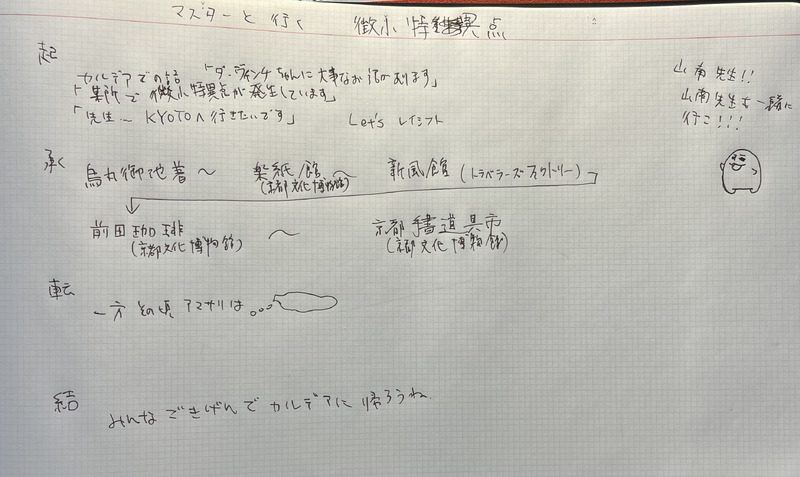 マスターと行く 微小特異点
起
カルデアでの話 「ダ・ヴィンチちゃんに大事なお話があります」
「某所で微小特異点が発生しています」
「先生… KYOTOへ行きたいです」 Let's レイシフト
山南先生!!
山南先生も一緒に
行こ!!!
承
烏丸御池着〜 楽紙館〜 新風館(トラベラーズファクトリー)
(京都文化博物館)
前田珈琲 〜 京都書道具市
(京都文化博物館) (京都文化博物館)
転
一方その頃アマサリは
結
みんなごきげんでカルデアに帰ろうね